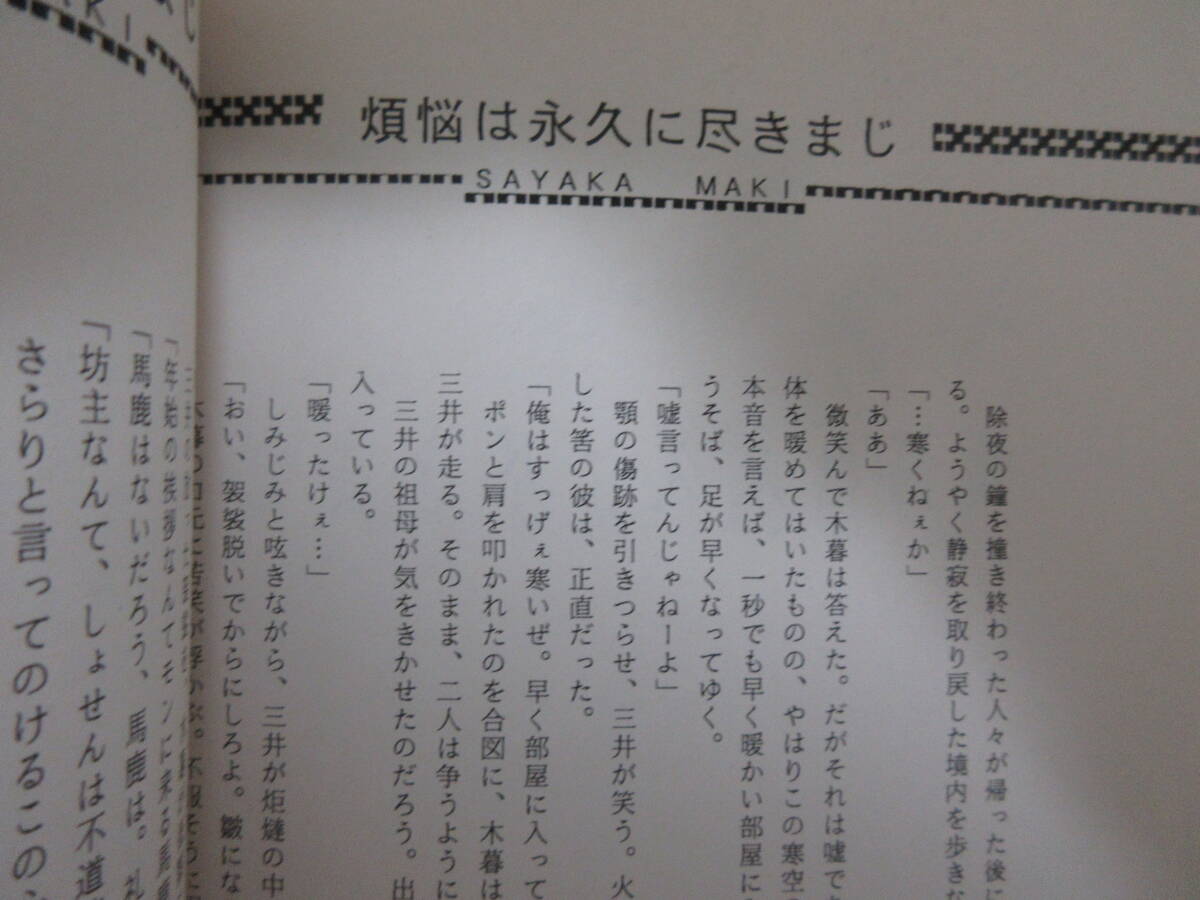 煩悩は永久に尽きまじ
SAYAKA MAKI
除夜の鐘を撞き終わった人々が帰った後に
る。ようやく静寂を取り戻した境内を歩きな
「…寒くねぇか」
「ああ」
微笑んで木暮は答えた。だがそれは嘘で
体を暖めてはいたものの、やはりこの寒空
本音を言えば、一秒でも早く暖かい部屋に
うそば、足が早くなってゆく。
「嘘言ってんじゃねーよ」
顎の傷跡を引きつらせ、三井が笑う。火
した筈の彼は、正直だった。
「俺はすっげぇ寒いぜ。早く部屋に入って
ポンと肩を叩かれたのを合図に、木暮は
三井が走る。そのまま、二人は争うように
三井の祖母が気をきかせたのだろう。出
入っている。
「暖ったけぇ…」
しみじみと呟きながら、三井が炬燵の中
「おい、袈裟脱いでからにしろよ。皺にな
「年始の挨拶なんて
「馬鹿はないだろう、馬鹿は。礼
「坊主なんて、しょせんは不道
さらりと言ってのけるこの